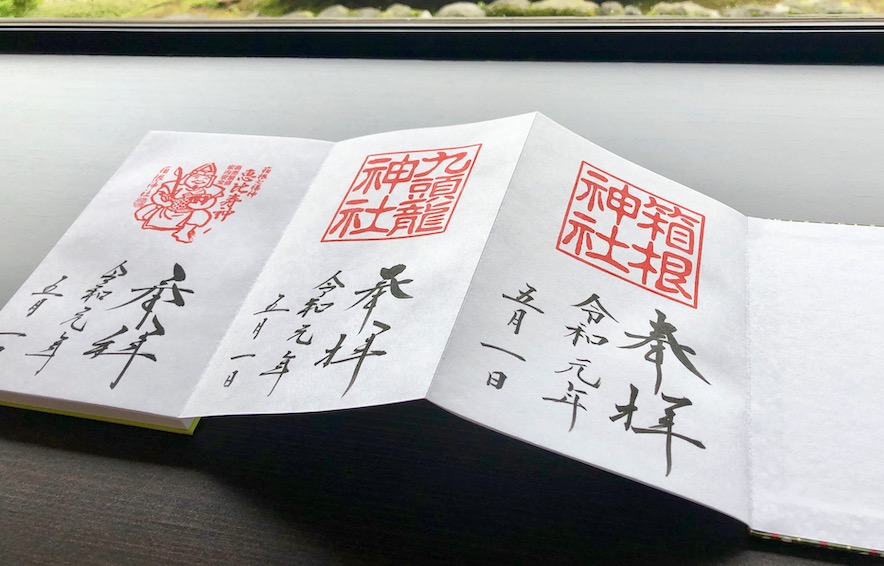 箱根
神社
奉拝
令和元年
五月一日
九頭龍
神社
奉拝
令和元年
五月一日
恵比寿神
箱根神社
奉拝
令和元年
五月一